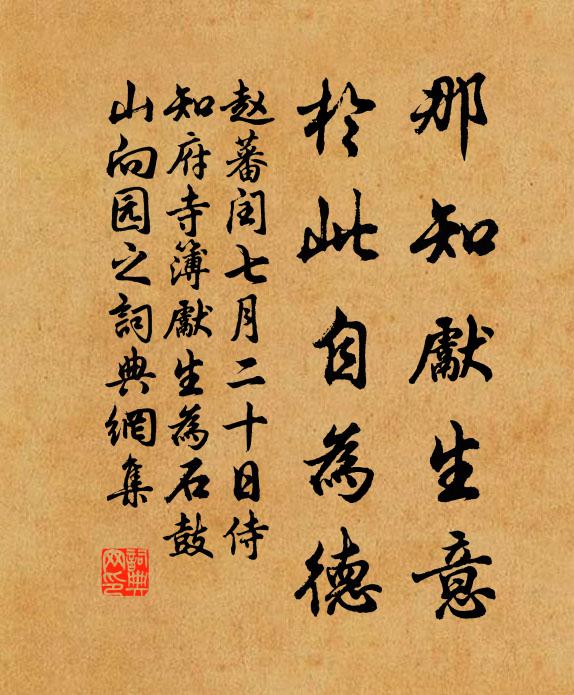 那知獻生意
於此自為德
赵蕃闰七月二十日侍
知府寺簿獻生為石鼓
山向园之詞典網集
詞典网印